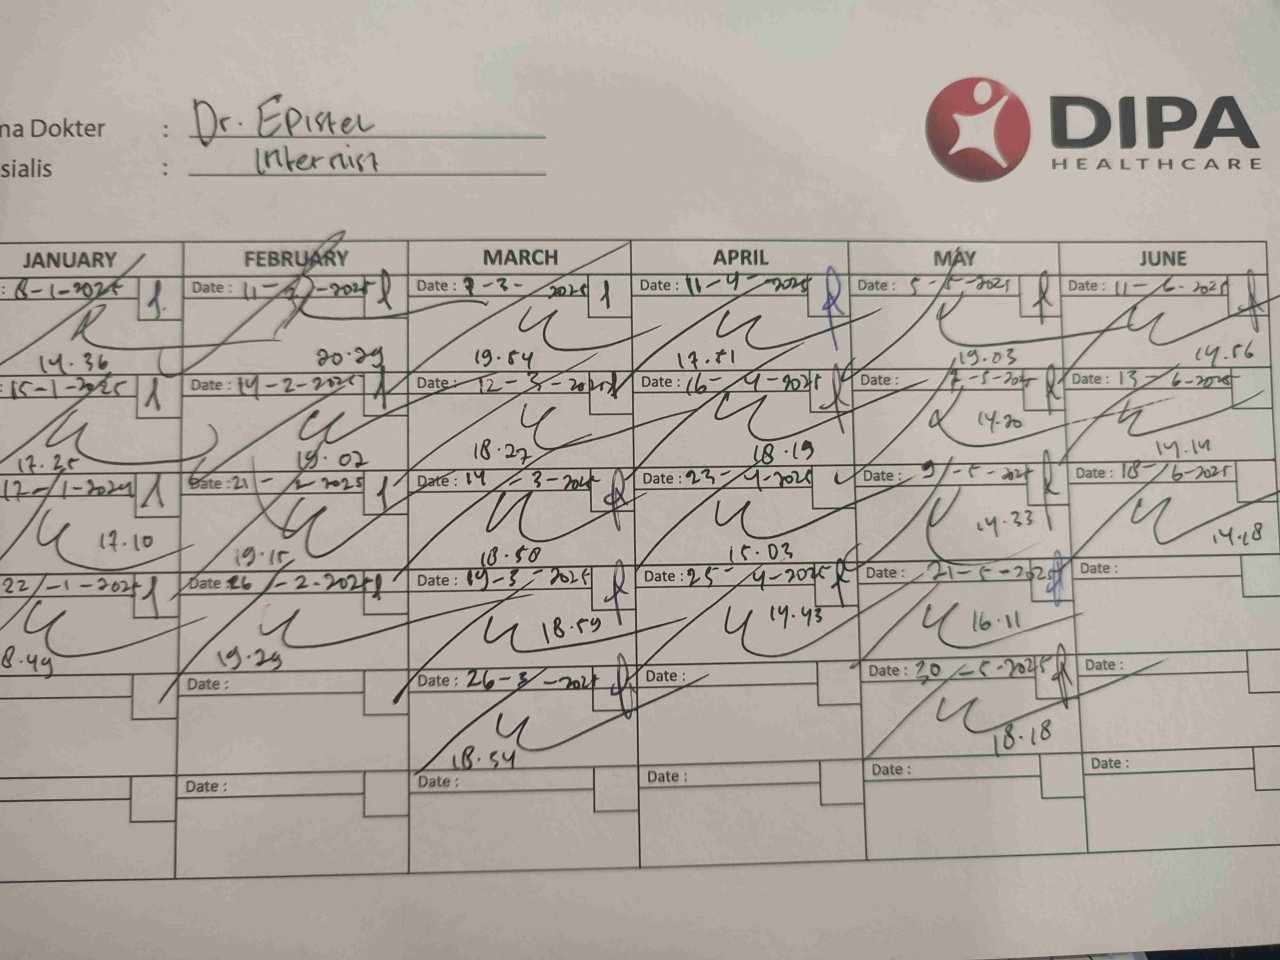 na Dokter : Dr. Epistel
sialis : Internist
DIPA
HEALTHCARE
JANUARY FEBRUARY MARCH APRIL MAY JUNE
: 8-1-2025 Date : 11-2-2025 Date : 7-3-2025 Date : 11-4-2025 Date : 5-5-2025 Date : 11-6-2025
14.36 20.29 19.54 17.51 19.03 14.56
15-1-2025 Date : 14-2-2025 Date : 12-3-2025 Date : 16-4-2025 Date : 7-5-2025 Date : 13-6-2025
17.25 19.02 18.27 18.19 14.20 14.14
17-1-2024 Date : 21-2-2025 Date : 14-3-2025 Date : 23-4-2025 Date : 9-5-2025 Date : 18-6-2025
17.10 19.15 18.50 15.03 14.33 14.18
22-1-2025 Date : 26-2-2025 Date : 19-3-2025 Date : 25-4-2025 Date : 21-5-2025 Date :
8.49 19.29 18.59 14.43 16.11
Date : Date : 26-3-2025 Date : Date : 30-5-2025 Date :
18.54 18.18
Date : Date : Date : Date : Date :